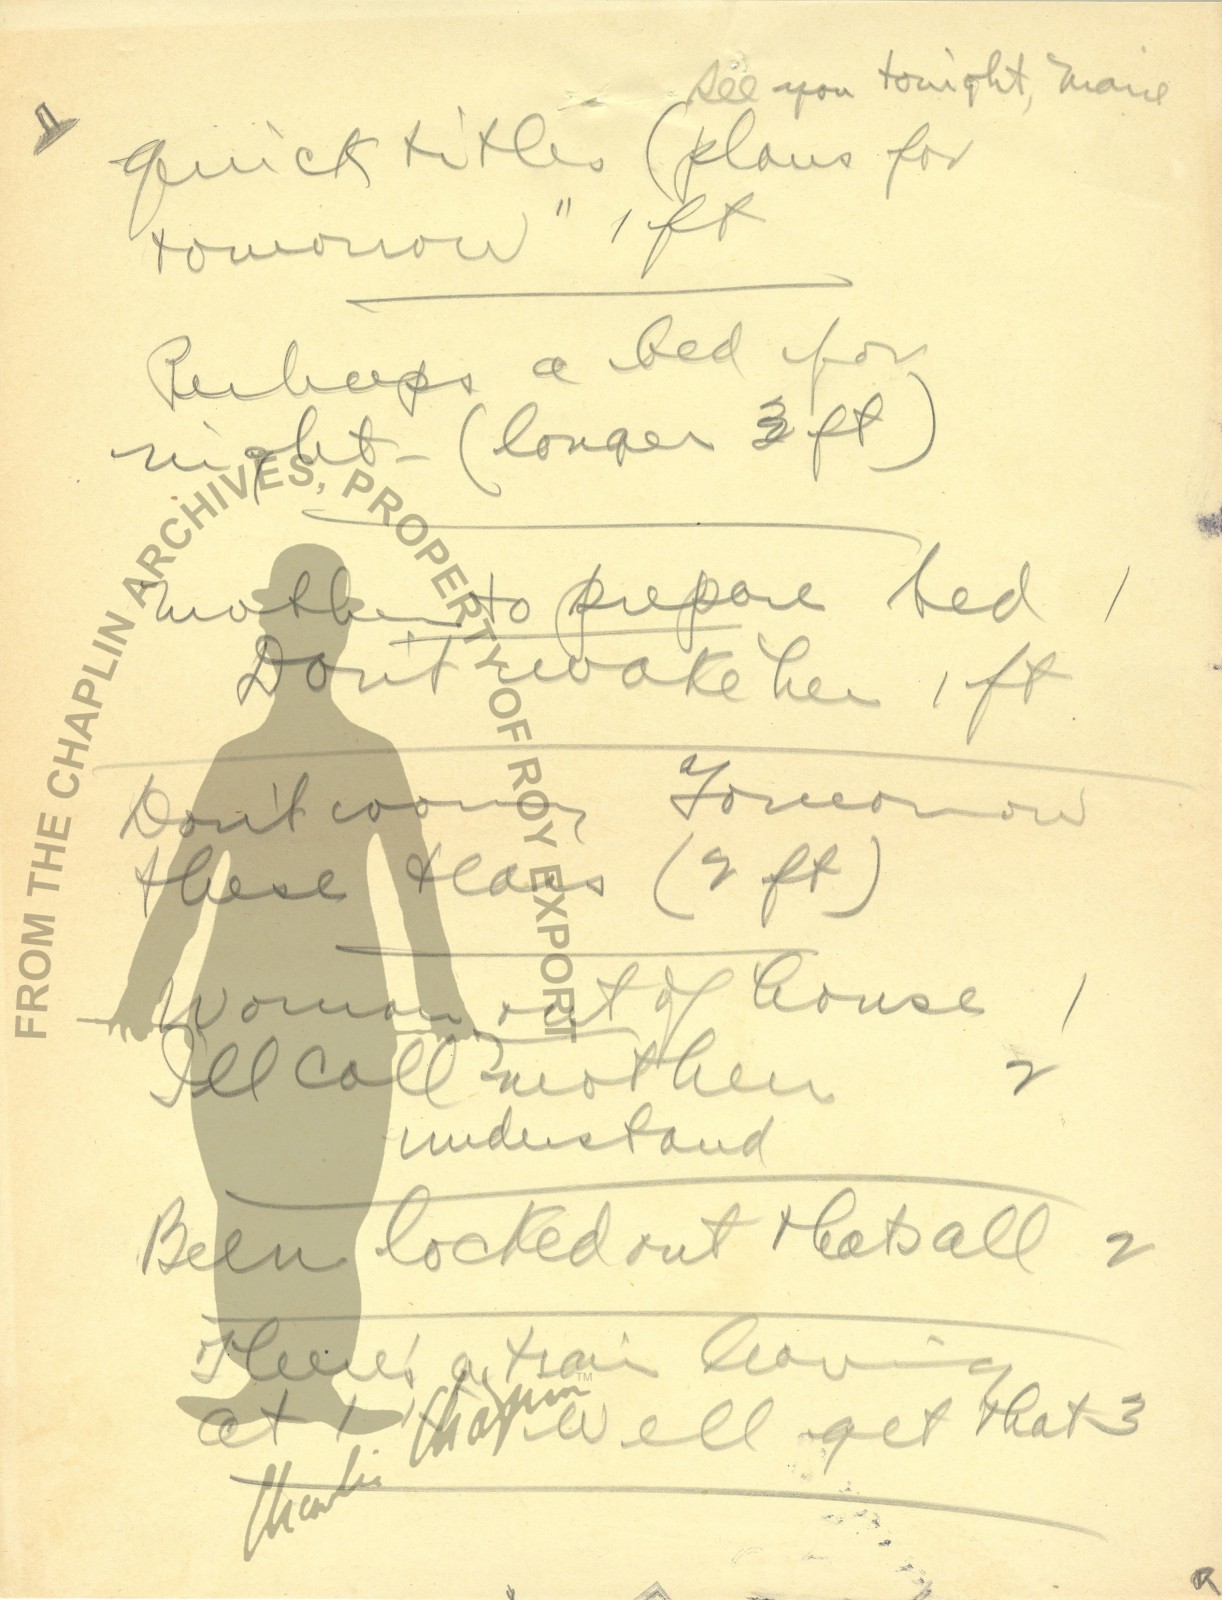 See you tonight, Marie
1
quick titles (plans for
tomorrow" 1 ft
Perhaps a bed for
night - (longer 3 ft)
mother to prepare bed 1
Don't wake her 1 ft
Don't worry Tomorrow
these tears (2 ft)
Woman out of house 1
I'll call mother 2
understand
Been locked out thats all 2
There's a train leaving
at 1 We ll get that 3
R
FROM THE CHAPLIN ARCHIVES, PROPERTY OF ROY EXPORT
Charlie Chaplin ™